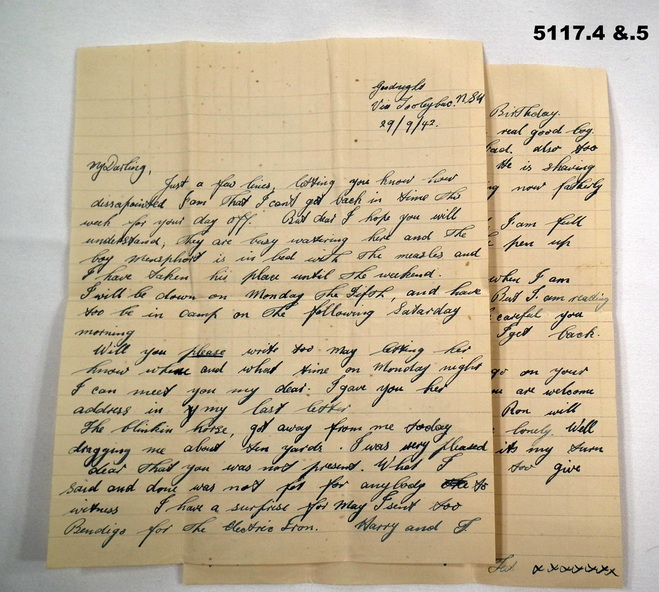 5117.4 &.5
Goodnight
Via Tooleybuc. N.S.W
29/9/42.
My Darling,
Just a few lines, letting you know how
dissapointed I am that I can't get back in time this
week for your day off. But dear I hope you will
understand, they are busy watering here and the
boy is in bed with the measles and
I have taken his place until the weekend.
I will be down on Monday the Fifth and have
too be in camp on the following Saturday
morning
Will you please write too May letting her
know where and what time on Monday night
I can meet you my dear. I gave you her
address in my last letter
The blinkin horse, got away from me today
dragging me about ten yards. I was very pleased
dear that you was not present. What I
said and done was not fit for anybody to
witness I have a surprise for May I sent too
Bendigo for the Electric Iron. Harry and I
Birthday.
real good boy.
also too
He is shaving
now fatherly
I am full
pen up
when I am
But I am
careful you
I get back.
go on your
are welcome
Ron will
lonely. Well
its my turn
too give
xxxxxxx